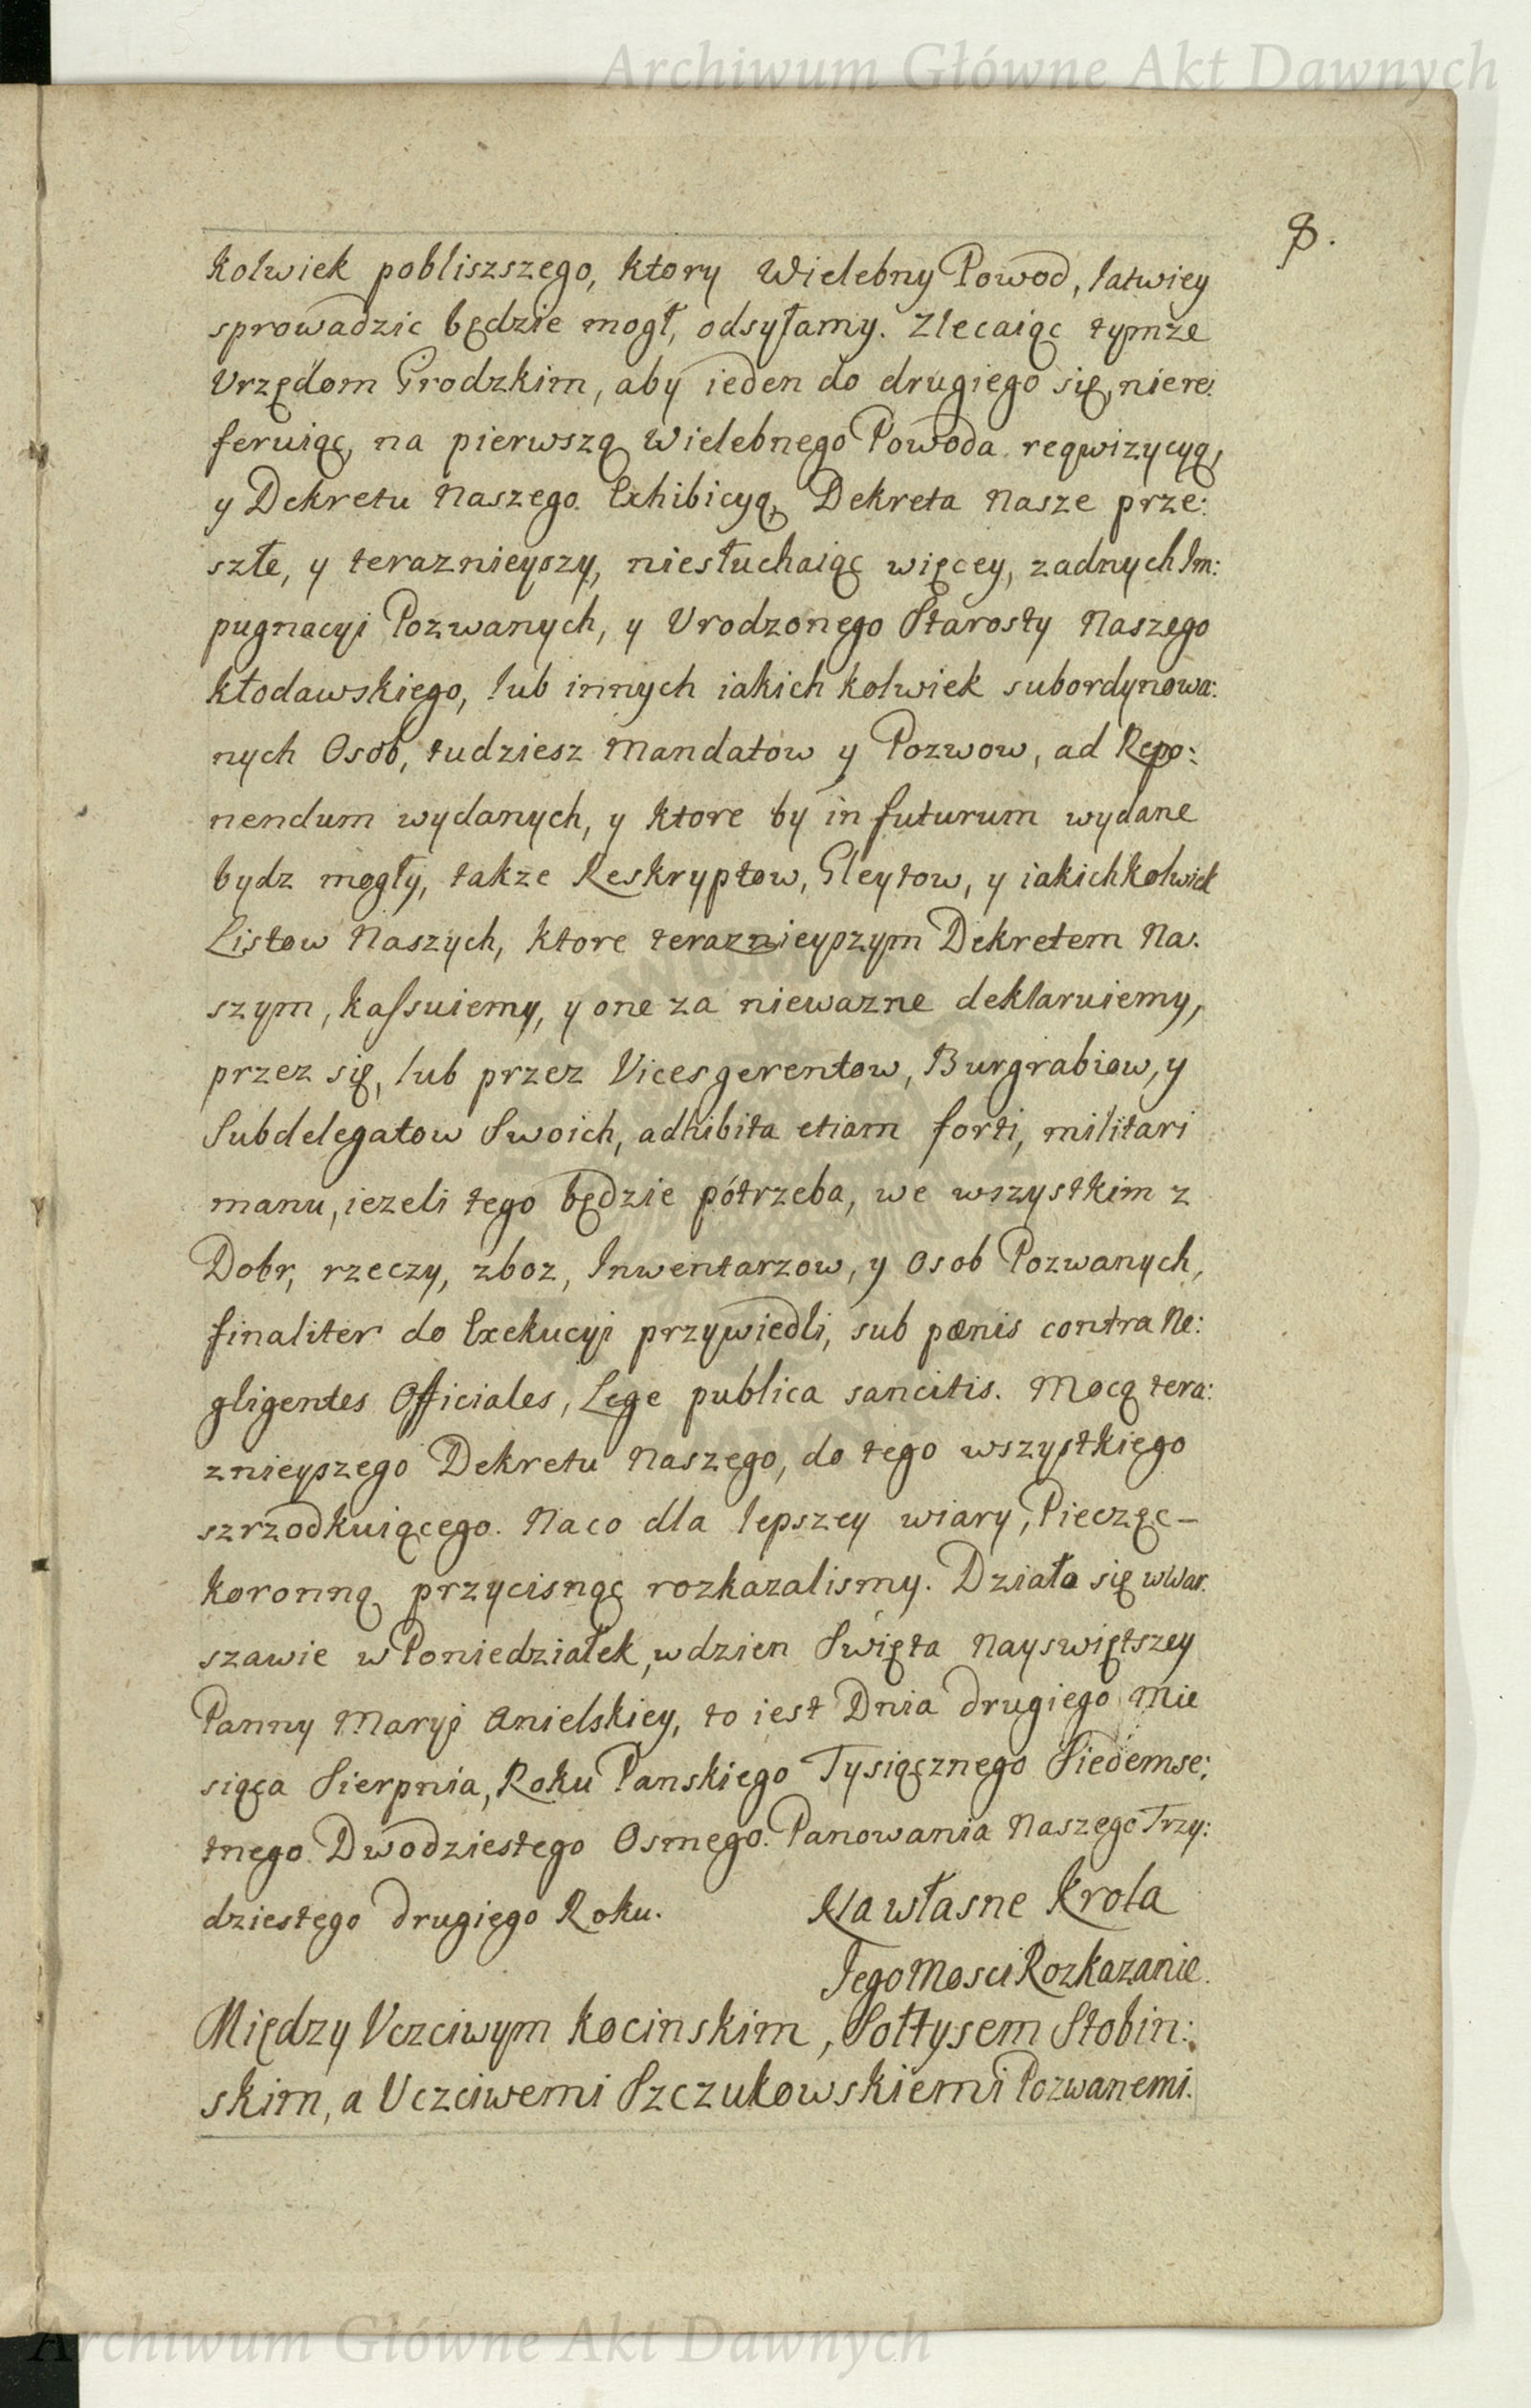 Archiwum Główne Akt Dawnych
8.
kolwiek pobliszszego, ktory Wielebny Powod, łatwiey
sprowadzic będzie mogł, odsyłamy. Zlecaiąc tymże
Vrzędom Grodzkim, aby ieden do drugiego się, niere:
feruiąc, na pierwszą Wielebnego Powoda reqwizycyą,
y Dekretu Naszego Exhibicyą, Dekreta Nasze prze:
szłe, y teraznieyszy, niesłuchaiąc więcey, zadnych Im:
pugnacyi Pozwanych, y Vrodzonego Starosty Naszego
kłodawskiego, lub innych iakich kolwiek subordynowa:
nych Osob, tudziesz Mandatow y Pozwow, ad Repo:
nendum wydanych, y ktore by in futurum wydane
bydz mogły, takze Reskryptow, Gleytow, y iakichkolwiek
Listow Naszych, ktore teraznieyszym Dekretem Na:
szym, kassuiemy, y one za niewazne deklaruiemy,
przez się, lub przez Vicesgerentow, Burgrabiow, y
Subdelegatow Swoich, adhibita etiam forti, militari
manu, iezeli tego będzie pótrzeba, we wszystkim z
Dobr, rzeczy, zboz, Inwentarzow, y Osob Pozwanych,
finaliter do Exekucyi przywiedli, sub pœnis contra Ne:
gligentes Officiales, Lege publica sancitis. Mocą tera:
znieyszego Dekretu Naszego, do tego wszystkiego
szrzodkuiącego. Naco dla lepszey wiary, Pieczęc-
koronną przycisnąc rozkazalismy. Działo się wWar:
szawie w Poniedziałek, wdzien Swięta Nayswiętszey
Panny Maryi Anielskiey, to iest Dnia drugiego Mie
siąca Sierpnia, Roku Panskiego Tysiącznego Siedemse:
tnego Dwodziestego Osmego. Panowania Naszego Trzy:
dziestego drugiego Roku. Na własne Krola
Jego Mosci Rozkazanie.
Między Vczciwym Kocinskim, Sołtysem Stobin:
skim, a Vczciwemi Szczukowskiemi Pozwanemi.
Archiwum Główne Akt Dawnych